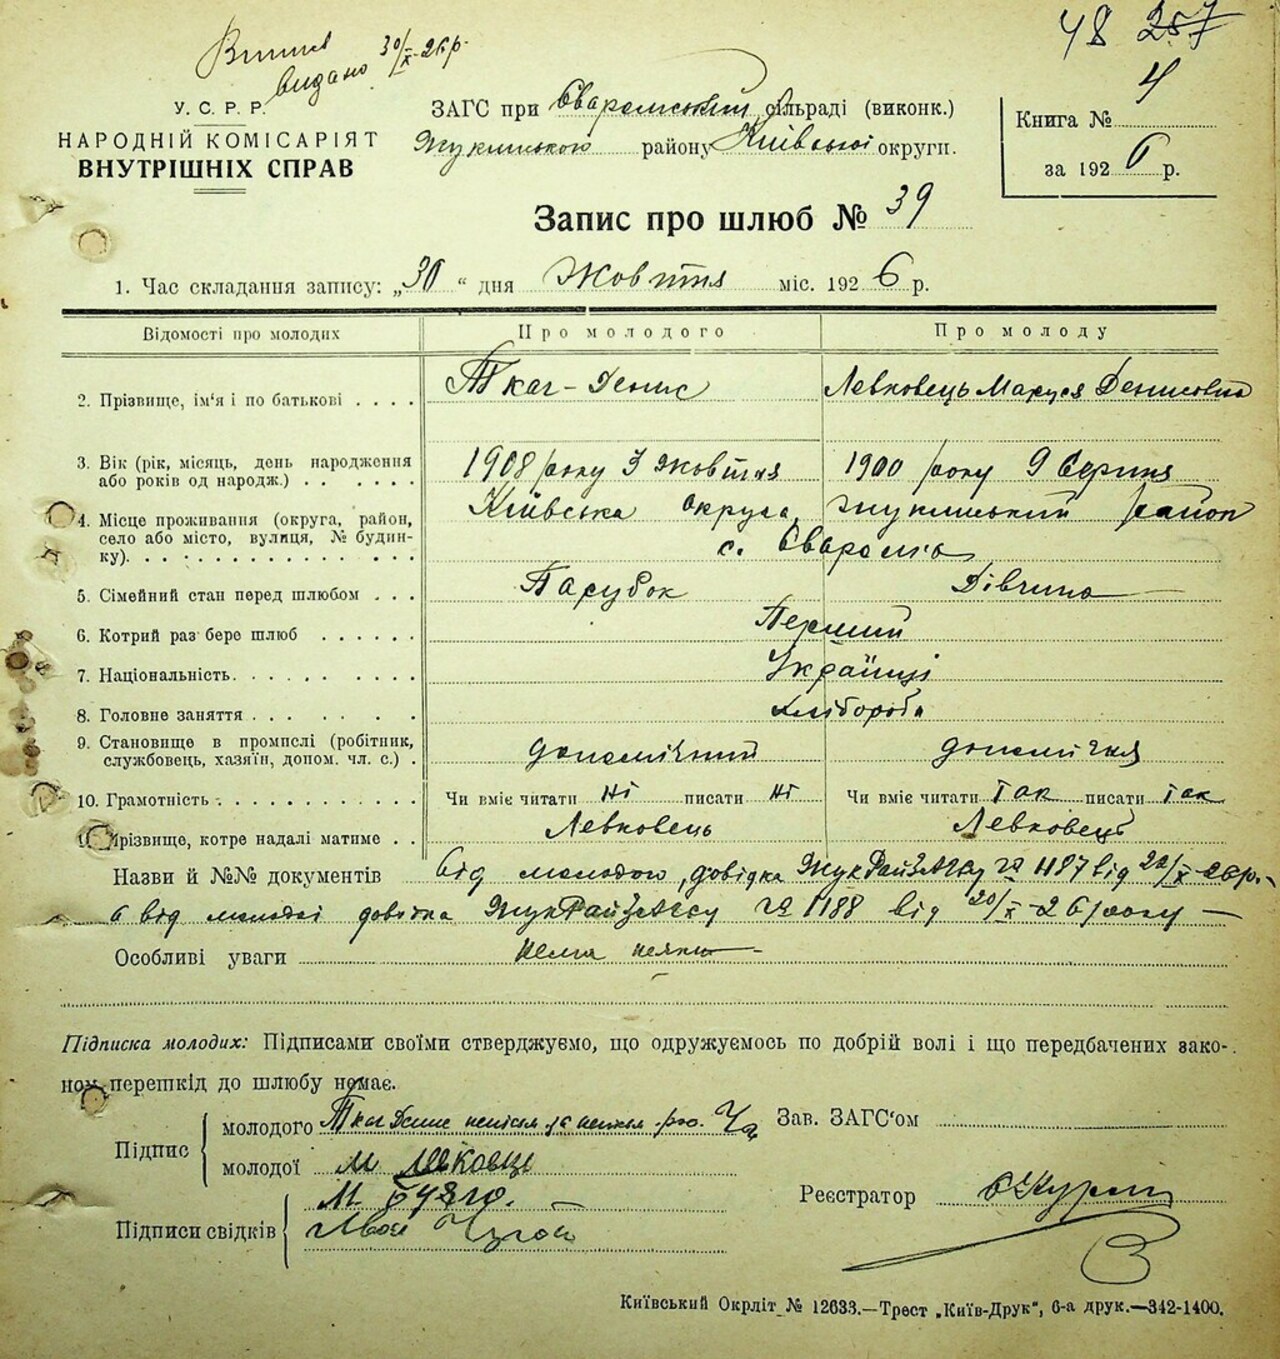 48 257
видано 30/X-26 р.
У. С. Р. Р.
НАРОДНІЙ КОМІСАРІЯТ
ВНУТРІШНІХ СПРАВ
ЗАГС при Сваромський сільраді (виконк.)
Жукинського району Київської округи.
Книга № 4
за 1926 р.
Запис про шлюб № 39
1. Час складання запису: „30“ дня Жовтня міс. 1926 р.
Відомості про молодих Про молодого Про молоду
2. Прізвище, ім'я і по батькові . . . . Ткач - Денис Левковець Маруся Денисовна
3. Вік (рік, місяць, день народження 1908 року 3 жовтня 1900 року 9 Серпня
або років од народж.) . . . . . .
4. Місце проживання (округа, район, Київська округа, Жукинський район
село або місто, вулиця, № будин- с. Сваромья
ку). . . . . . . . . . . . . .
5. Сімейний стан перед шлюбом . . . Парубок Дівчина
6. Котрий раз бере шлюб . . . . . . Перший
7. Національність. . . . . . . . . Українці
8. Головне заняття . . . . . . . Хлібороби
9. Становище в промислі (робітник, допомічний допомічня
службовець, хазяїн, допом. чл. с.) .
10. Грамотність . . . . . . . . . . Чи вміє читати ні писати ні Чи вміє читати Так писати так
11. Прізвище, котре надалі матиме . . Левковець Левковець
Назви й №№ документів від молодого, довідка ЖукРайЗАГСу № 1187 від 20/X-26 р.
а від молодої довідка ЖукРайЗАГСу № 1188 від 20/X-26 року —
Особливі уваги нема ніяких —
Підписка молодих: Підписами своїми стверджуємо, що одружуємось по добрій волі і що передбачених зако-
ном перешкід до шлюбу немає.
Підпис
молодого Ткач Денис
молодої М Левковець
Підписи свідків
Зав. ЗАГС'ом
Реєстратор
Київський Окрліт № 12633.—Трест „Київ-Друк“, 6-а друк.—342-1400.